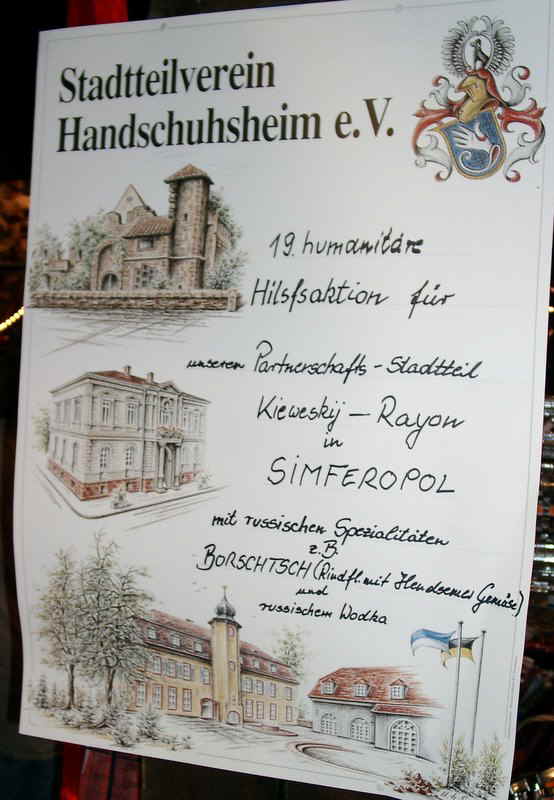 Stadtteilverein
Handschuhsheim e.V.
19. humanitäre
Hilsfsaktion für
unseren Partnerschafts-Stadtteil
Kieweskij - Rayon
in
SIMFEROPOL
mit russischen Spezialitäten
z.B.
BORSCHTSCH (Rindfl. mit Hendsemer Gemüse)
und
russischem Wodka